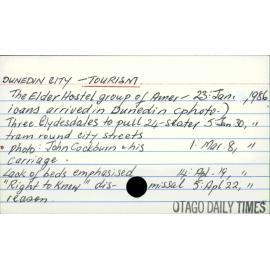 DUNEDIN CITY - TOURISM.
The Elder Hostel group of Amer- 23: Jan. , 1986
icans arrived in Dunedin (photo.)
Three Clydesdales to pull 24-seater 5: Jan 30, "
tram round city streets
Photo: John Cockburn & his 1: Mar. 8, "
carriage.
Lack of beds emphasised 14: Apl. 19, "
"Right to Know" dis- missal 5: Apl 22, "
reason
OTAGO DAILY TIMES